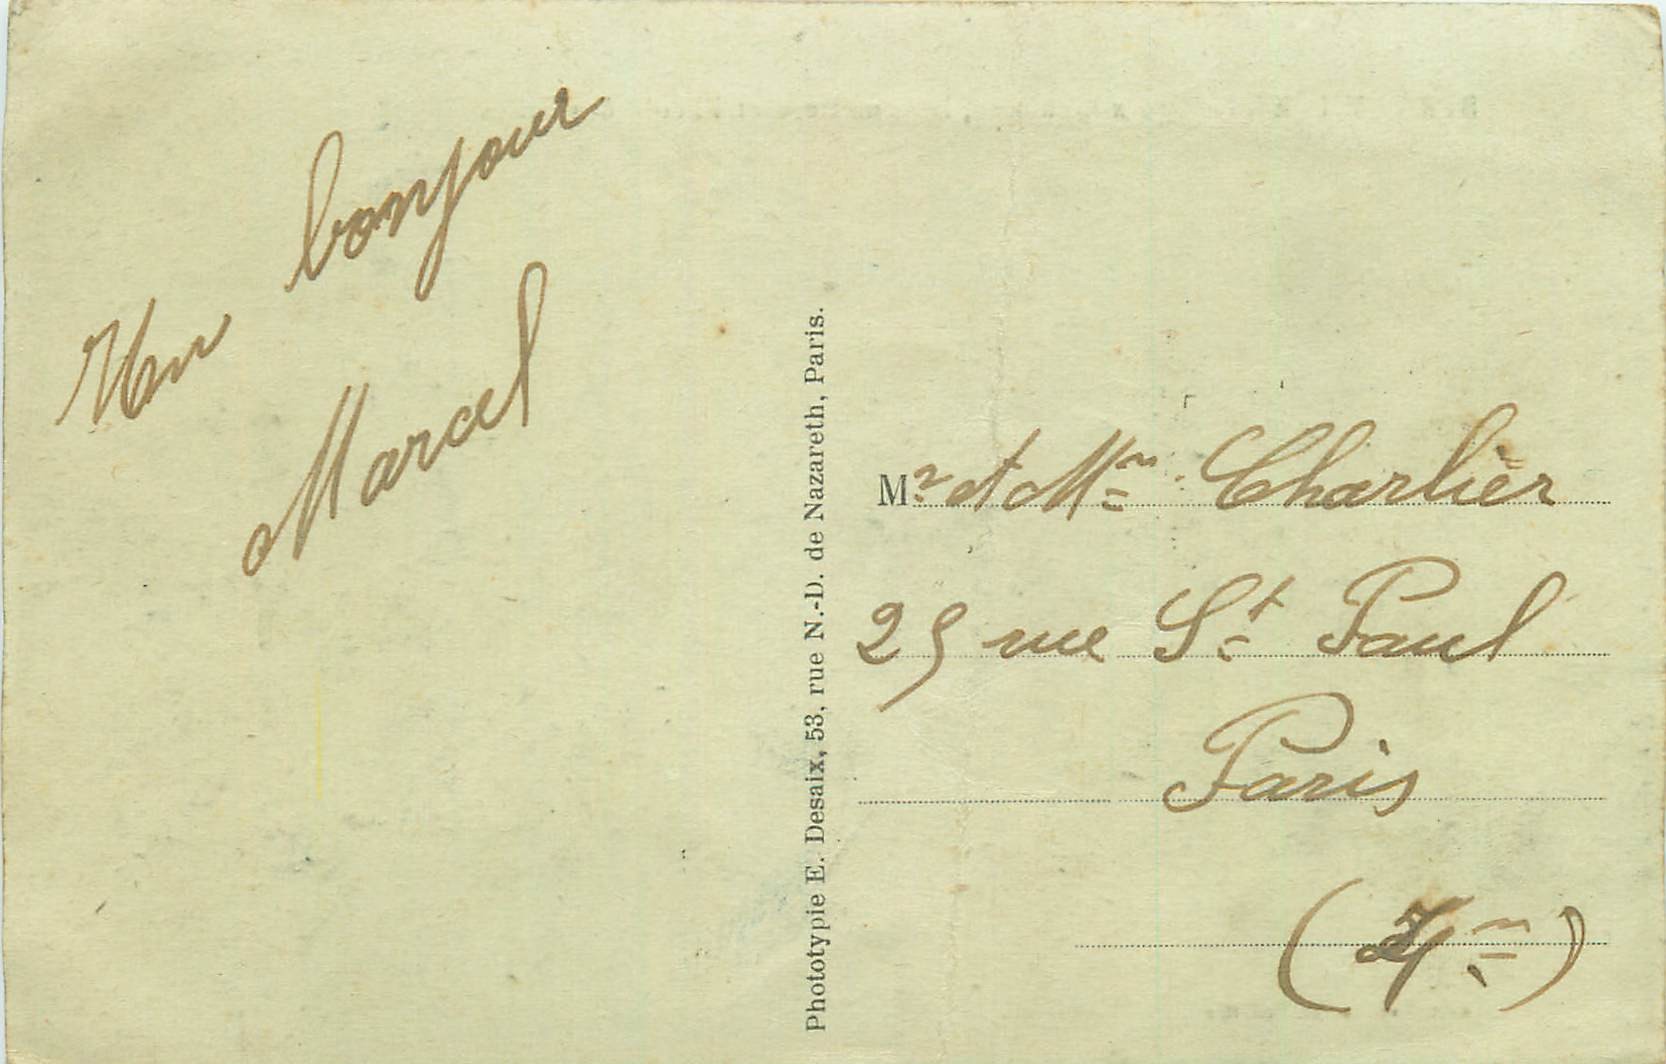 Un bonjour
Marcel
Phototypie E. Desaix, 53, rue N.-D. de Nazareth, Paris.
Mr et Mme Charlier
25 rue St Paul
Paris
(4me)